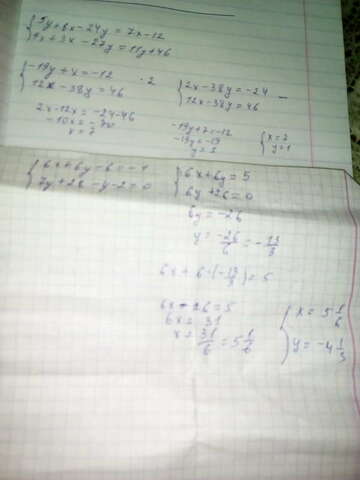 5y+8x-24y=7x-12
9x+3x-27y=11y+46
-19y+x=-12 ·2
12x-38y=46
2x-38y=-24 -
12x-38y=46
2x-12x=-24-46
-10x=-70
x=7
-19y+7=-12
-19y=-19
y=1
x=7
y=1
6x+6y-6=-1
7y+28-y-2=0
6x+6y=5
6y+26=0
6y=-26
y=-26/6=-13/3
6x+6·(-13/3)=5
6x-26=5
6x=31
x=31/6=5 1/6
x=5 1/6
y=-4 1/3